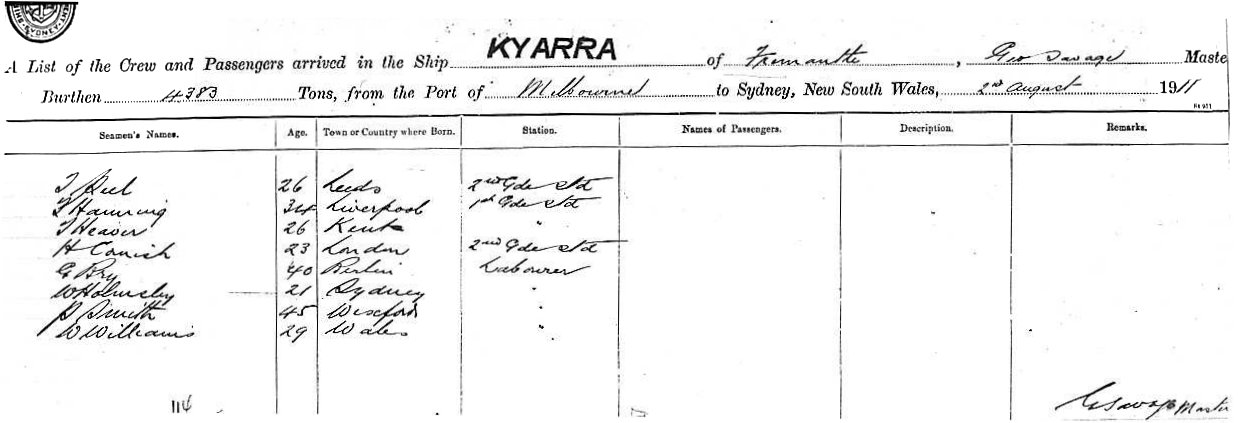 SYDNEY
A List of the Crew and Passengers arrived in the Ship KYARRA of Fremantle, Geo Savage Maste
Burthen 4383 Tons, from the Port of Melbourne to Sydney, New South Wales, 2nd August 1911
Seamen's Names. Age. Town or Country where Born. Station. Names of Passengers. Description. Remarks.
T Peel 26 Leeds 2nd Gde Std
Hanning 34 Liverpool 1st Gde Std
Heaver 26 Kent "
H Cornish 23 London 2nd Gde Std
G Bry 40 Berlin Labourer
W Holmsley 21 Sydney "
P Smith 45 Wexford "
W Williams 29 Wales "
114
G Savage Master